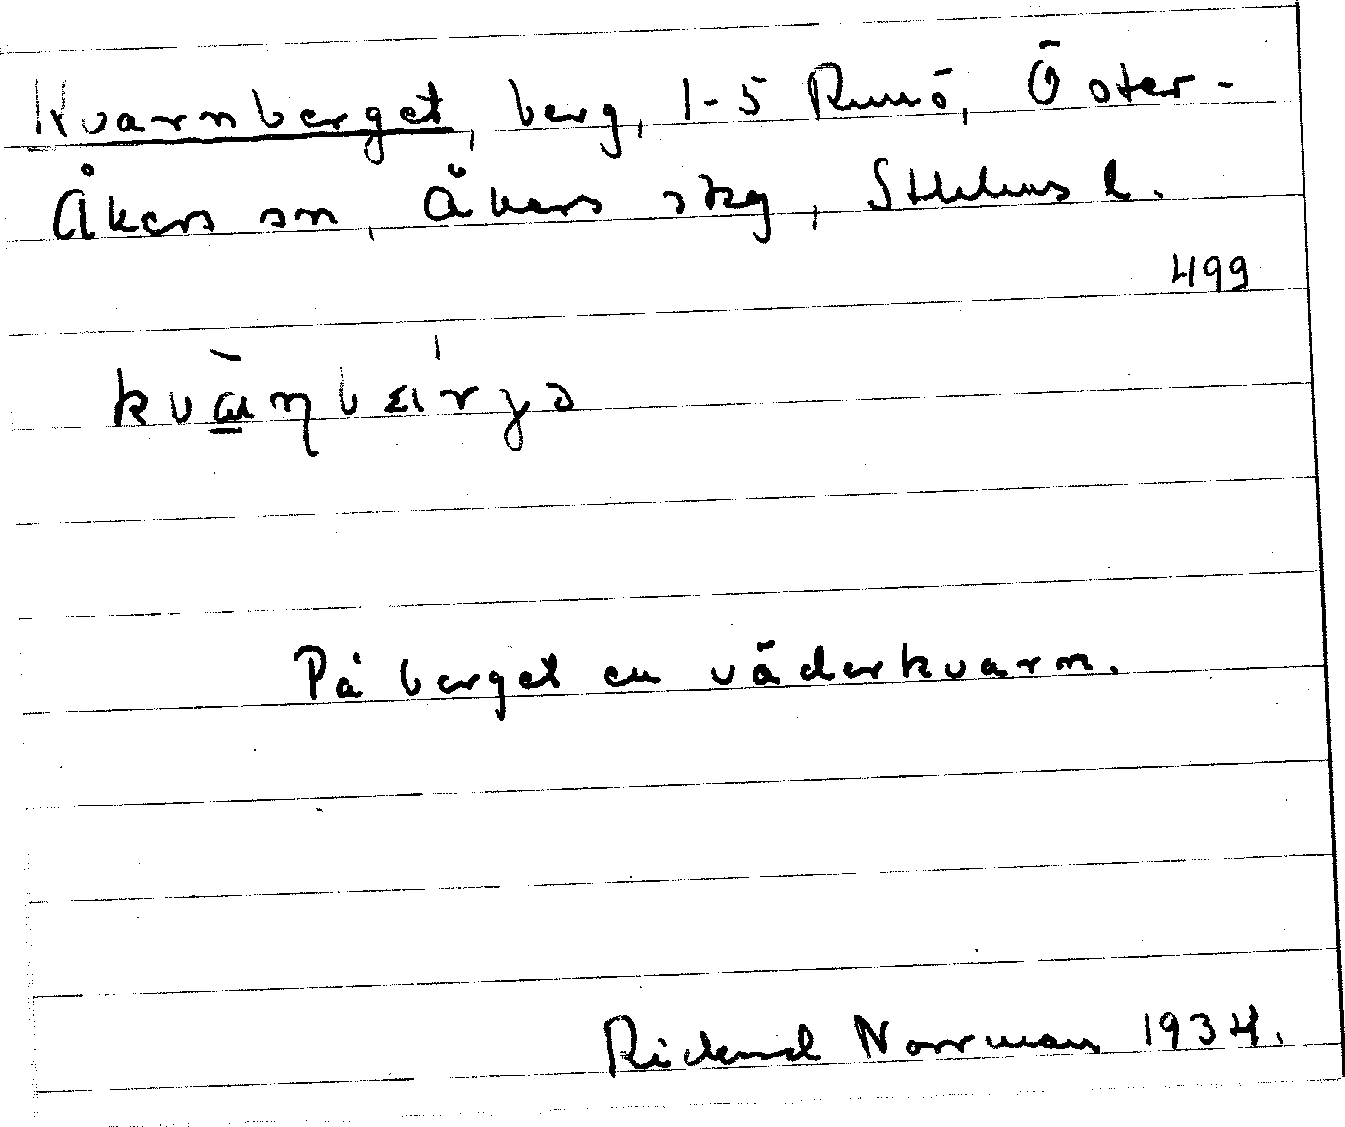 Kvarnberget, berg, 1-5 Runö, Öster-
Åkers sn, Åkers skg, Sthlms l.
499
På berget en väderkvarn.
Rickard Norrman 1934.